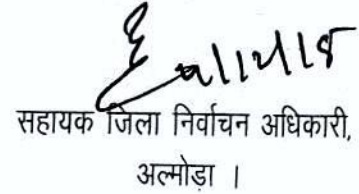 सहायक जिला निर्वाचन अधिकारी,
अल्मोड़ा ।